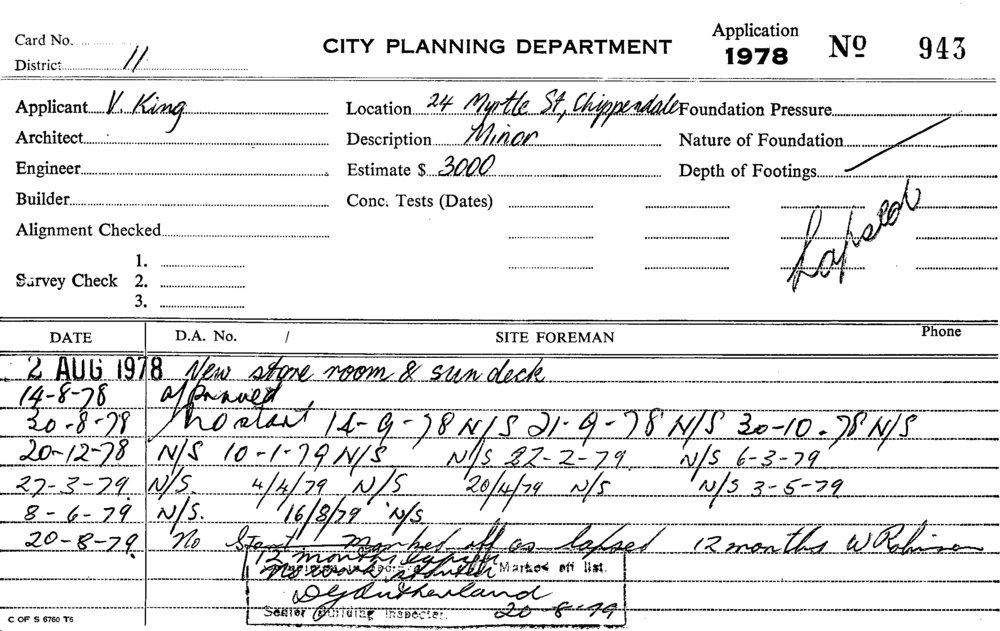 Card No.
District 11
CITY PLANNING DEPARTMENT
Application
1978 No 943
Applicant V. King
Location 24 Myrtle St, Chippendale
Foundation Pressure
Architect
Description Minor
Nature of Foundation
Engineer
Estimate $ 3000
Depth of Footings
Builder
Conc. Tests (Dates)
Alignment Checked
Lapsed
Survey Check 1.
2.
3.
DATE D.A. No. / SITE FOREMAN Phone
2 AUG 1978 New store room & sun deck
14-8-78 approved
30-8-78 no start 14-9-78 N/S 21-9-78 N/S 30-10-78 N/S
20-12-78 N/S 10-1-79 N/S N/S 22-2-79 N/S 6-3-79
27-3-79 N/S. 4/4/79 N/S 20/4/79 N/S N/S 3-5-79
8-6-79 N/S. 16/8/79 N/S
20-8-79 No Start Marked off as lapsed 12 months W Robinson
12 months lapsed
No work started Marked off list.
DG Sutherland
Senior Building Inspector. 20-8-79
C OF S 6760 T6